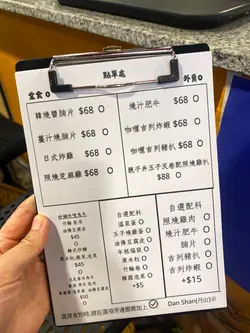 點單處
堂食O
外賣O
韓燒醬腩片 $68 O
薑汁燒腩片 $68 O
日式炸雞 $68 O
照燒芝麻雞 $68 O
燒汁肥牛 $68 O
咖喱吉列炸蝦 $68 O
咖喱吉列豬扒 $68 O
親子丼玉子反卷配照燒雞扒
$88 O
油條豆腐皮
$45
O
$45
O
$50
O
自選配料
溫泉蛋 O
玉子燒雞蛋 O
油條豆腐皮 O
年糕福袋 O
粟米粒 O
竹輪卷 O
韓國泡菜 O
+$5
自選配料
照燒雞肉 O
燒汁肥牛 O
腩片 O
吉列豬扒 O
吉列炸蝦 O
+$15
選擇食物時,請在選項旁邊圈圈加上
Dan Shan(丹山)